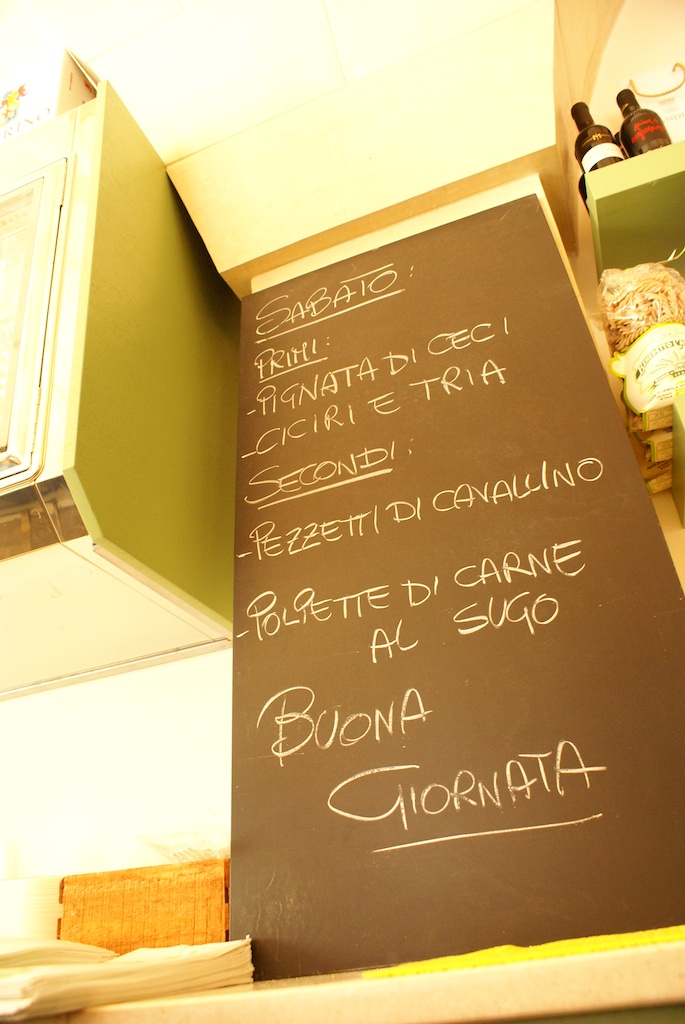 SABATO:
PRIMI:
-PIGNATA DI CECI
-CICIRI E TRIA
SECONDI:
-PEZZETTI DI CAVALLINO
-POLPETTE DI CARNE
AL SUGO
BUONA
GIORNATA